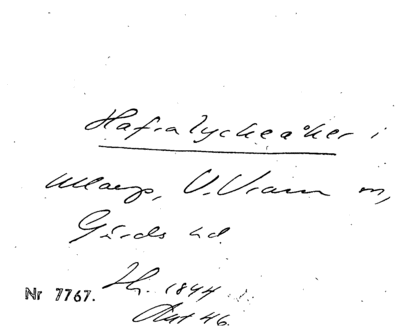 Hafralyckeåker i
Maarp, V. Vram sn,
Gärds hd.
Nr 7767. Lh. 1844
Akt 46.